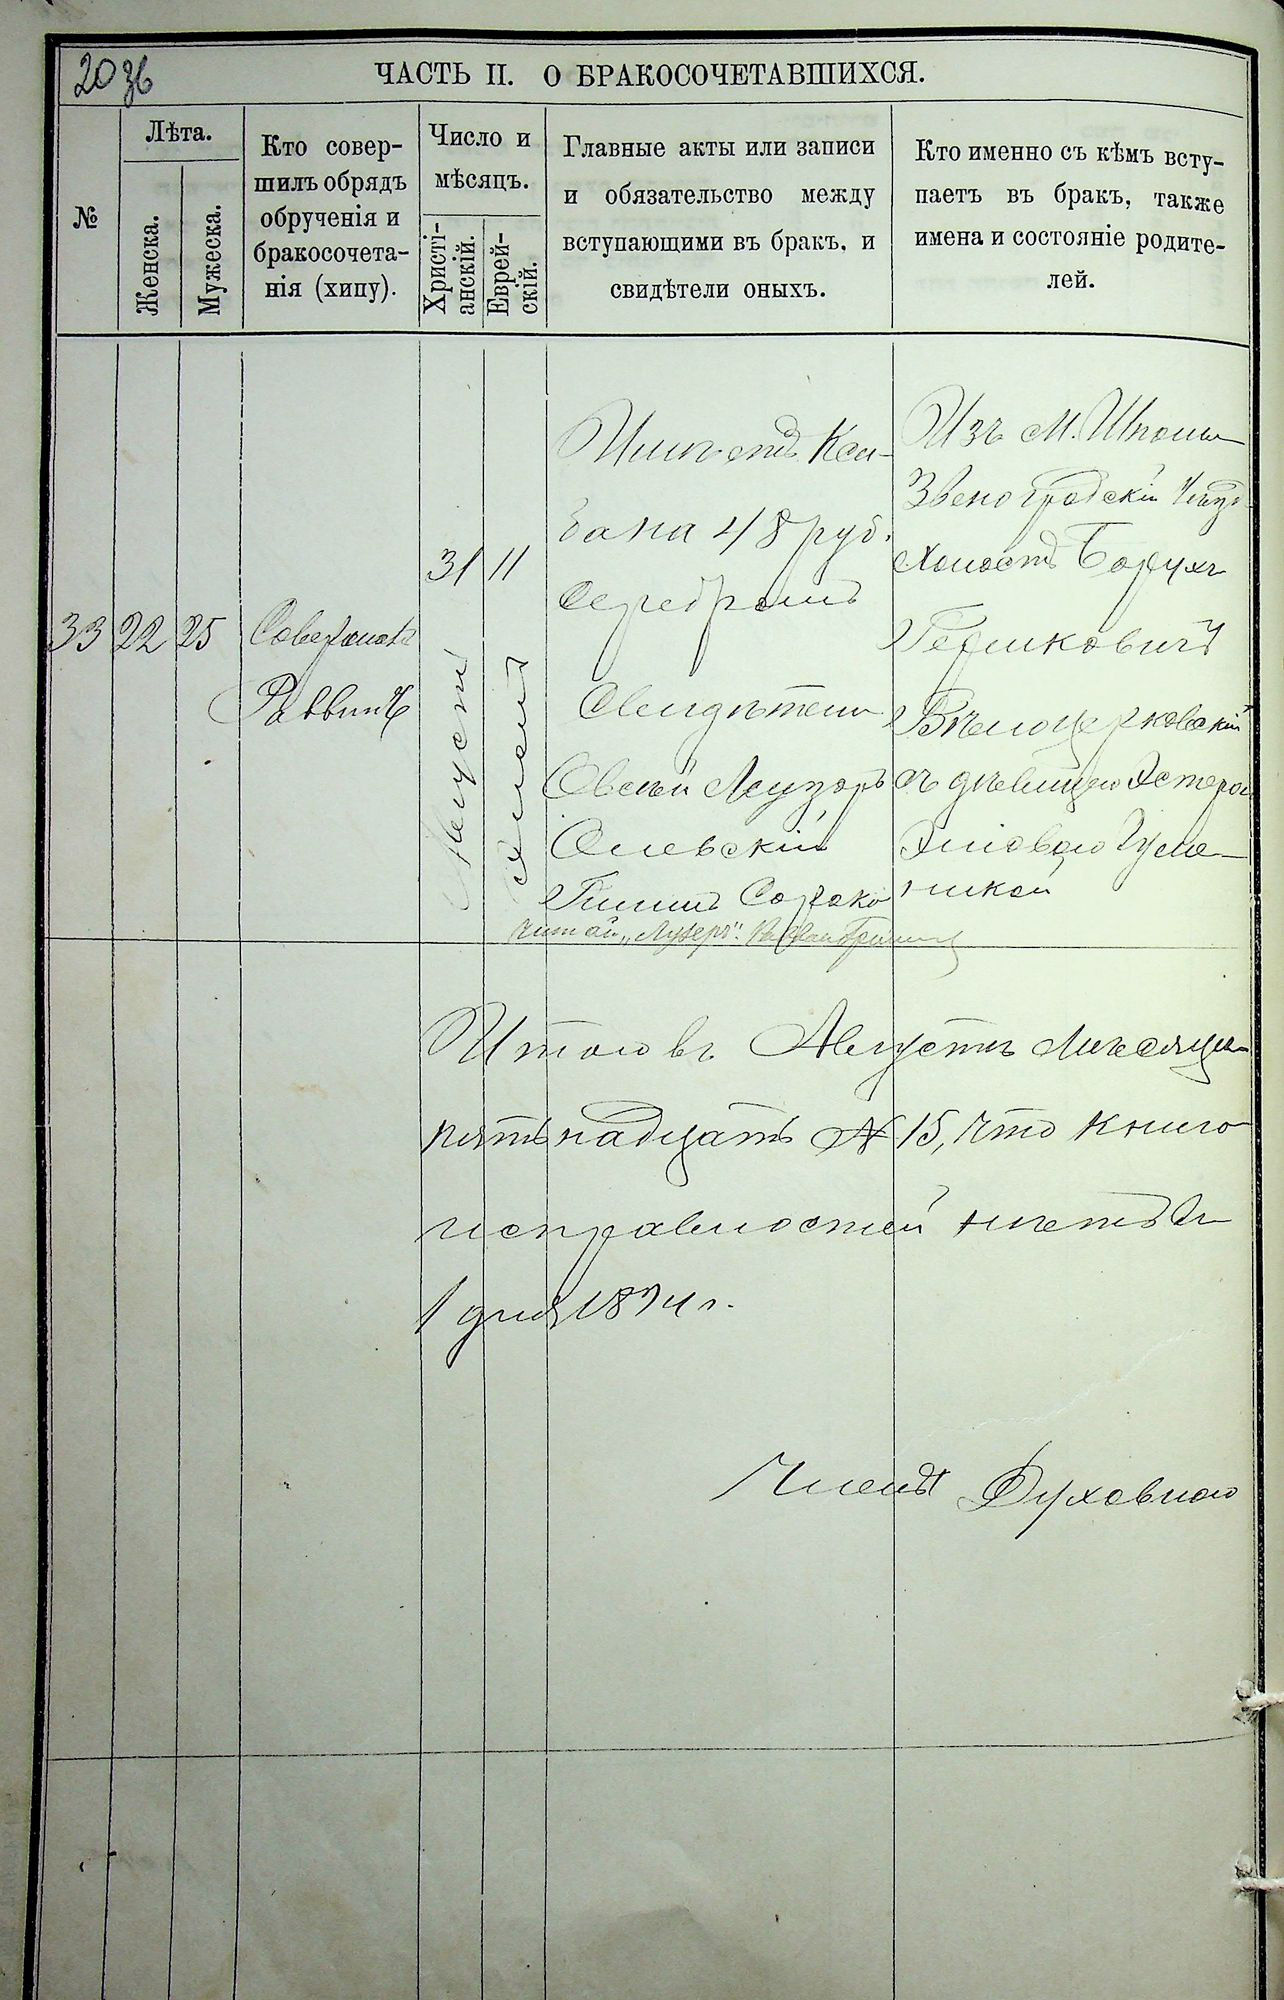 20 об
ЧАСТЬ II. О БРАКОСОЧЕТАВШИХСЯ.
№
Лѣта.
Женска.
Мужеска.
Кто совер-
шилъ обрядъ
обрученія и
бракосочета-
нія (хипу).
Число и
мѣсяцъ.
Христі-
анскій.
Еврей-
скій.
Главные акты или записи
и обязательство между
вступающими въ бракъ, и
свидѣтели оныхъ.
Кто именно съ кѣмъ всту-
паетъ въ бракъ, также
имена и состояніе родите-
лей.
33
22
25
Раввинъ
31
Августа
11
на 48 руб.
Серебромъ
Свидѣтели
Овсей Лузоръ
Олевскій
Сороко
Читай „Лузеръ“. Раввинъ
Изъ М. Шполы
Звеногродскій Уѣзд
Холостъ Борухъ
Гершковичъ
Бѣлоцерковскій
съ дѣвицею Эстерою
Гуме-
никой
Итого въ Августѣ Мѣсяцѣ
пятьнадцать № 15, что книго
исправностей нѣтъ
1 дня 1894 г.
Членъ Духовного